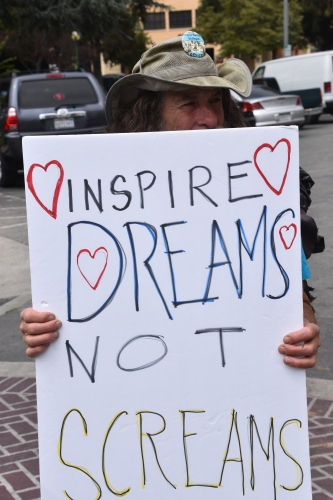 INSPIRE
DREAMS
NOT
SCREAMS